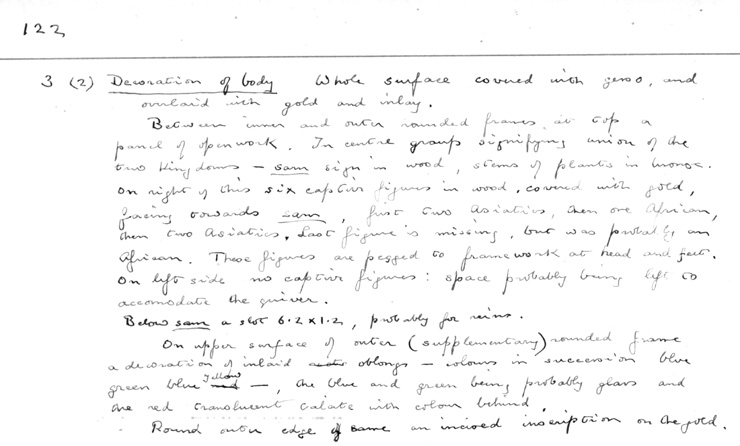 122
3 (2) Decoration of body Whole surface covered with gesso, and
overlaid with gold and inlay.
Between inner and outer rounded frames at top a
panel of openwork. In centre group signifying union of the
two Kingdoms – sam sign in wood, stems of plants in bronze.
On right of this six captive figures in wood, covered with gold,
facing towards sam, first two Asiatics, then one African,
then two Asiatics. Last figure is missing, but was probably an
African. These figures are pegged to framework at head and feet.
On left side no captive figures: space probably being left to
accomodate the quiver.
Below sam a slot 6.2 x 1.2, probably for reins.
On upper surface of outer (supplementary) rounded frame
a decoration of inlaid oblongs – colours in succession blue
green blue yellow red –, the blue and green being probably glass and
the red translucent calcite with colour behind.
Round outer edge of same an incised inscription on the gold.